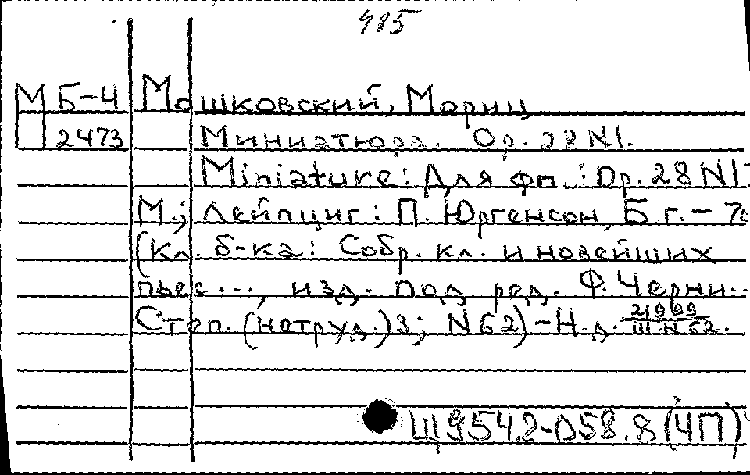 415
М Б-4 Мошковский, Мориц
2473 Миниатюра. Op. 28 N1.
Miniature: Для фп.: Op. 28 N1.
М.; Лейпциг: П. Юргенсон, Б.г. - 7
(Кл. б-ка: Собр. кл. и новейших
пьес..., изд. под ред. Ф. Черни..
Степ. (нетруд.) 3; N62) - Н.д.
Щ954.2-058.8(4П)